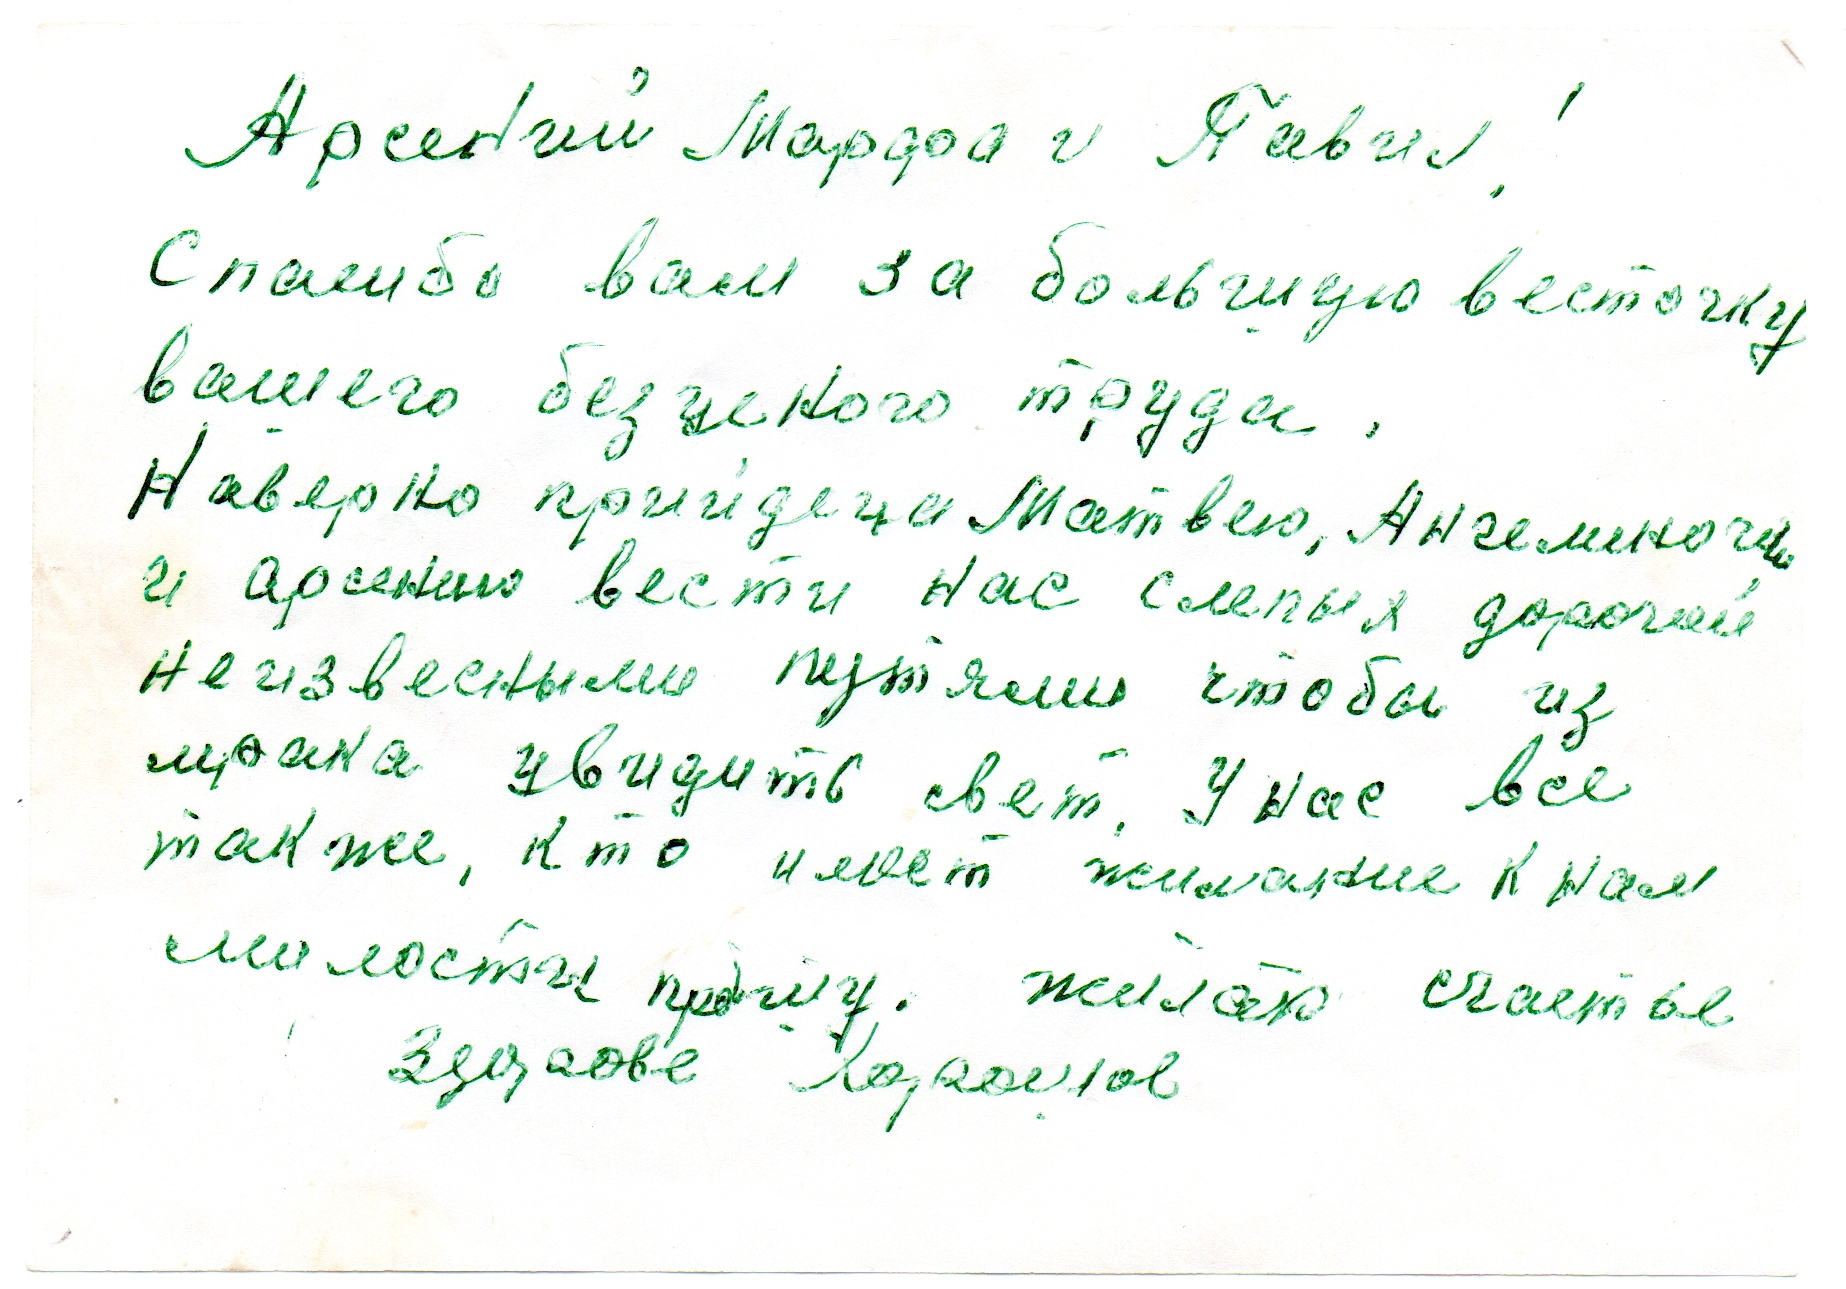 Арсений Марфа и Павил!
Спасибо вам за большую весточку
вашего безценого труда.
Наверно прийдеца Матвею,
и арсению вести нас слепых дорогой
неизвесными путями чтобы из
мрака увидить свет. У нас все
также, кто имеет жилание к нам
милости прошу. жилаю счастье